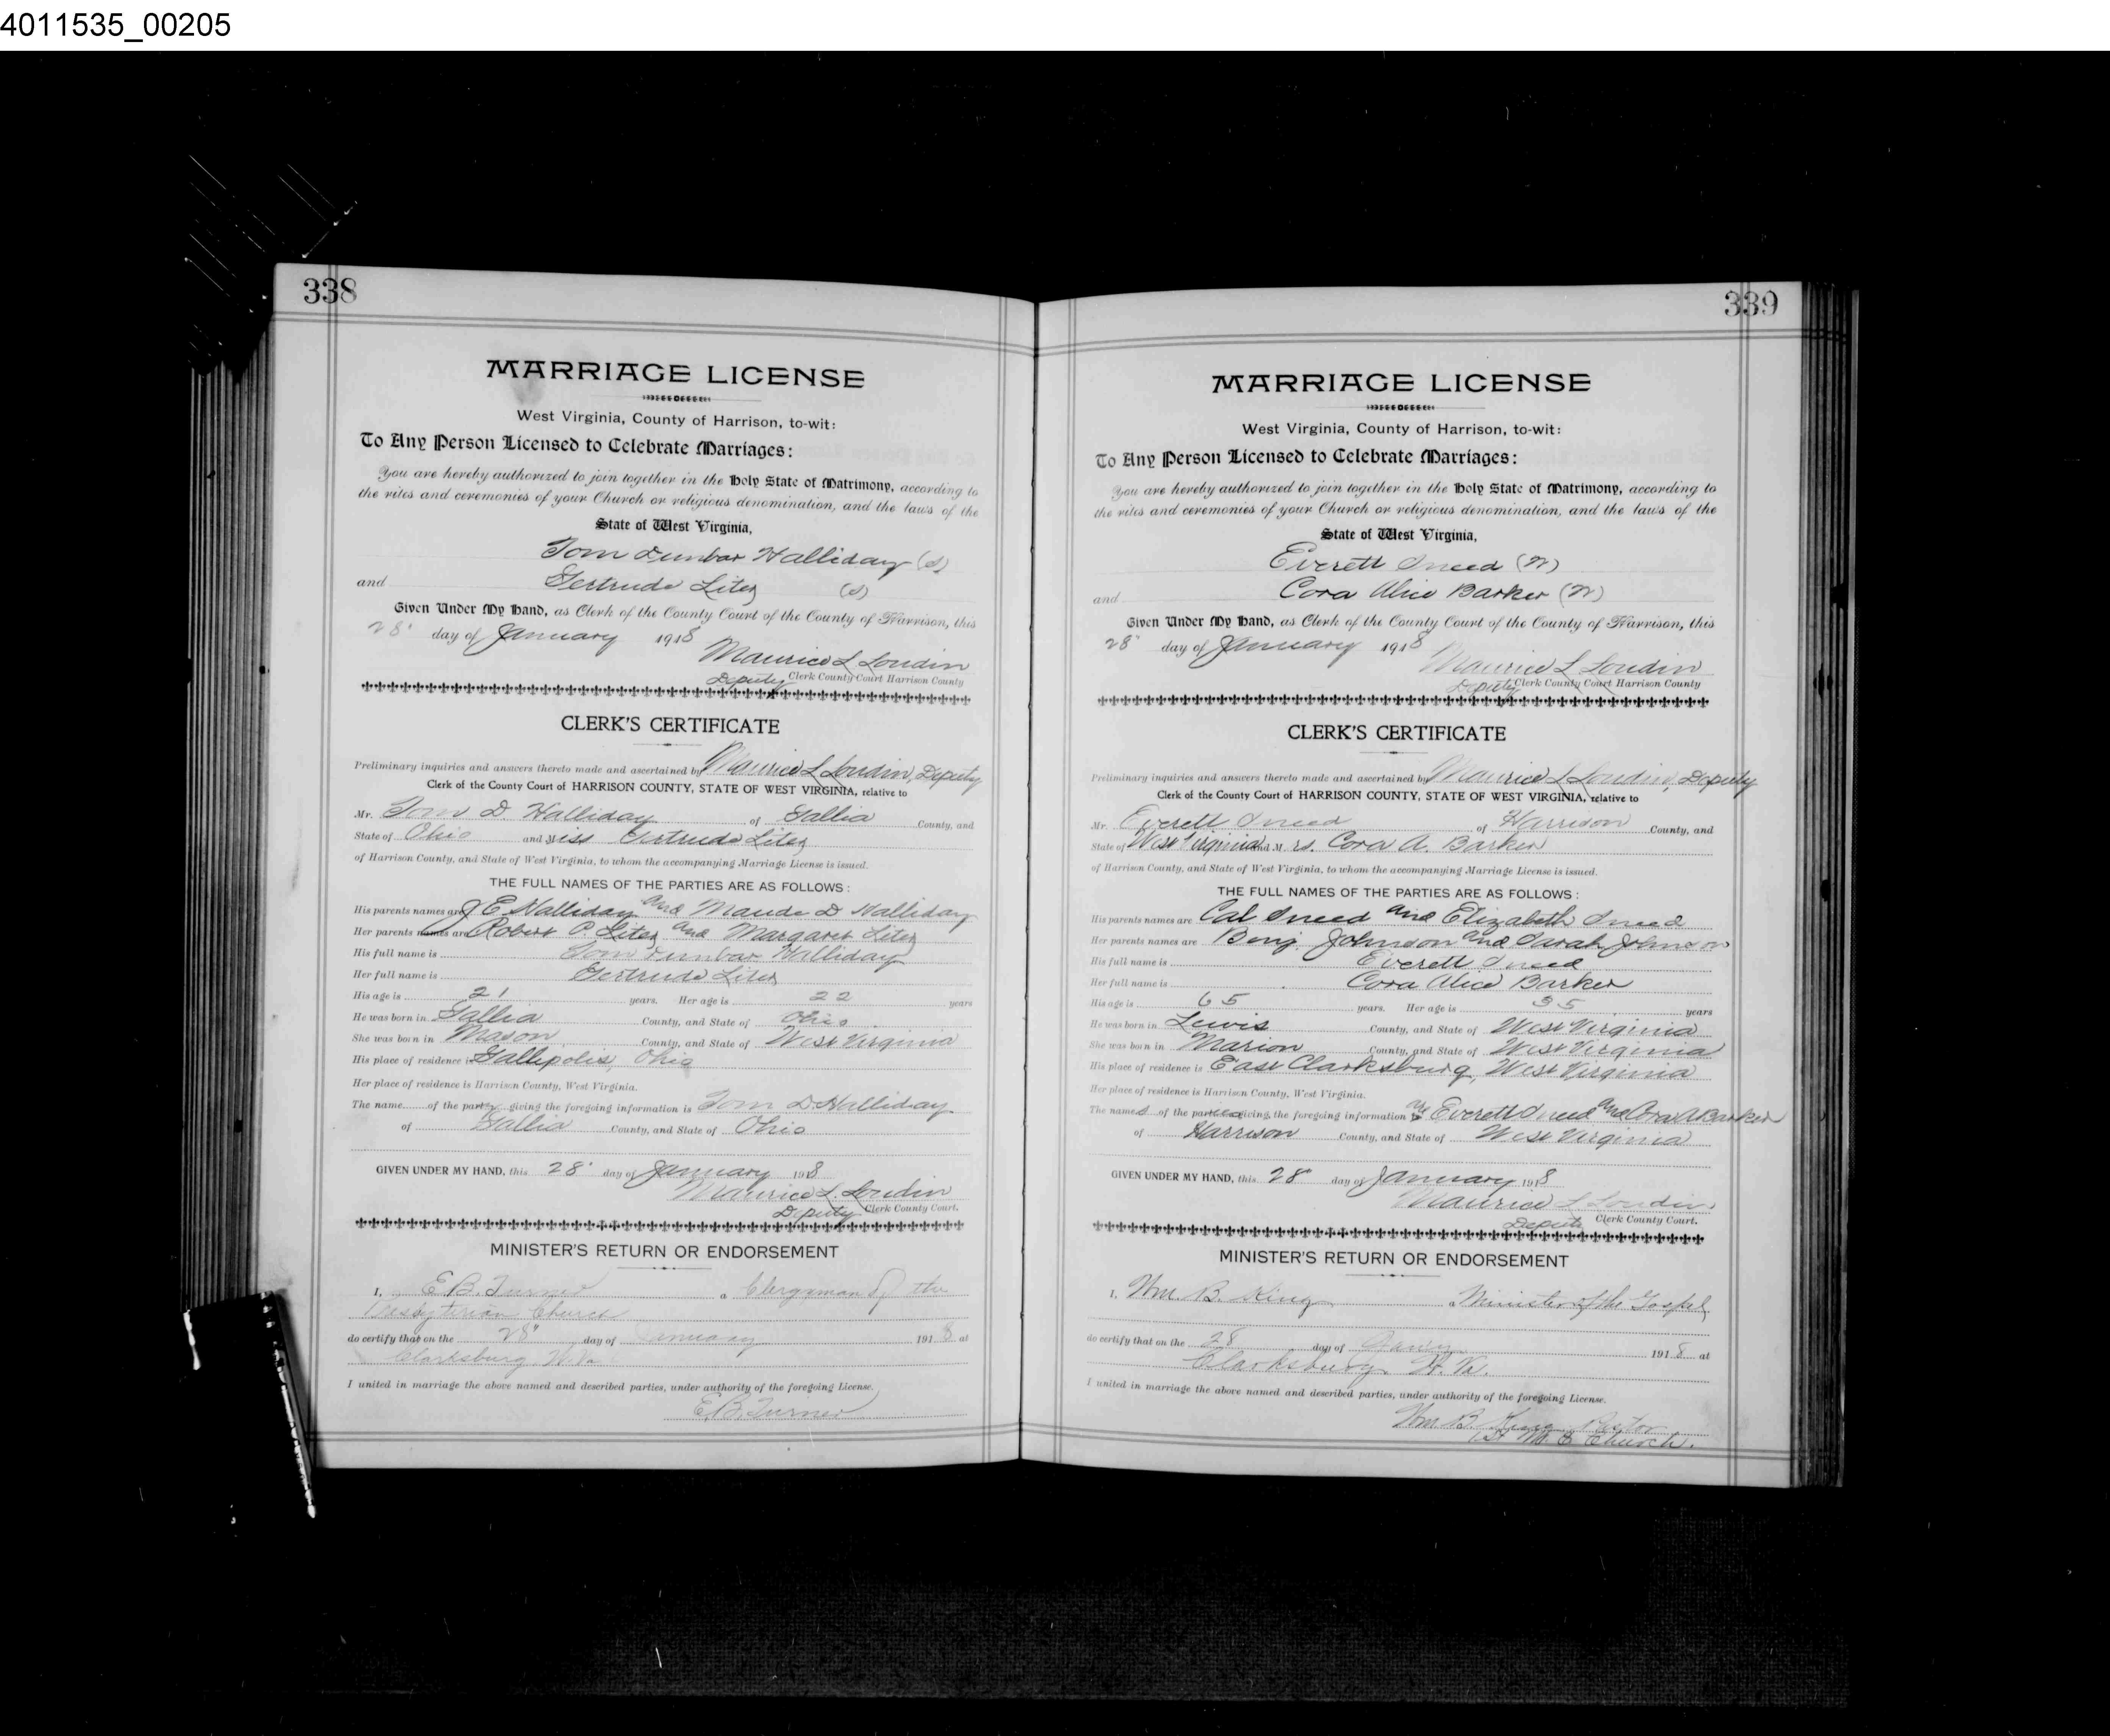 4011535_00205
338
MARRIAGE LICENSE
West Virginia, County of Harrison, to-wit:
To Any Person Licensed to Celebrate Marriages:
You are hereby authorized to join together in the Holy State of Matrimony, according to
the rites and ceremonies of your Church or religious denomination, and the laws of the
State of West Virginia,
Tom Dunbar Halliday (S)
and Gertrude Liter (S)
Given Under My Hand, as Clerk of the County Court of the County of Harrison, this
28" day of January 1918
Maurice L Loudin
Deputy Clerk County Court Harrison County
CLERK'S CERTIFICATE
Preliminary inquiries and answers thereto made and ascertained by Maurice L Loudin, Deputy
Clerk of the County Court of HARRISON COUNTY, STATE OF WEST VIRGINIA, relative to
Mr. Tom D. Halliday of Gallia County, and
State of Ohio and Miss Gertrude Liter
of Harrison County, and State of West Virginia, to whom the accompanying Marriage License is issued.
THE FULL NAMES OF THE PARTIES ARE AS FOLLOWS:
His parents names are J E Halliday and Maude D Halliday
Her parents names are Robert P. Liter and Margaret Liter
His full name is Tom Dunbar Halliday
Her full name is Gertrude Liter
His age is 21 years. Her age is 22 years
He was born in Gallia County, and State of Ohio
She was born in Mason County, and State of West Virginia
His place of residence is Gallipolis, Ohio
Her place of residence is Harrison County, West Virginia.
The name of the party giving the foregoing information is Tom D Halliday
of Gallia County, and State of Ohio
GIVEN UNDER MY HAND, this 28" day of January 1918
Maurice L. Loudin
Deputy Clerk County Court.
MINISTER'S RETURN OR ENDORSEMENT
I, E. B. Turner a Clergyman of the
Presbyterian Church
do certify that on the 28" day of January 1918 at
Clarksburg, W. Va.
I united in marriage the above named and described parties, under authority of the foregoing License.
E. B. Turner
339
MARRIAGE LICENSE
West Virginia, County of Harrison, to-wit:
To Any Person Licensed to Celebrate Marriages:
You are hereby authorized to join together in the Holy State of Matrimony, according to
the rites and ceremonies of your Church or religious denomination, and the laws of the
State of West Virginia,
Everett Sneed (W)
and Cora Alice Barker (W)
Given Under My Hand, as Clerk of the County Court of the County of Harrison, this
28" day of January 1918
Maurice L Loudin
Deputy Clerk County Court Harrison County
CLERK'S CERTIFICATE
Preliminary inquiries and answers thereto made and ascertained by Maurice L Loudin, Deputy
Clerk of the County Court of HARRISON COUNTY, STATE OF WEST VIRGINIA, relative to
Mr. Everett Sneed of Harrison County, and
State of West Virginia and Mrs. Cora A. Barker
of Harrison County, and State of West Virginia, to whom the accompanying Marriage License is issued.
THE FULL NAMES OF THE PARTIES ARE AS FOLLOWS:
His parents names are Cal Sneed and Elizabeth Sneed
Her parents names are Benj. Johnson and Sarah Johnson
His full name is Everett Sneed
Her full name is Cora Alice Barker
His age is 65 years. Her age is 35 years
He was born in Lewis County, and State of West Virginia
She was born in Marion County, and State of West Virginia
His place of residence is East Clarksburg, West Virginia
Her place of residence is Harrison County, West Virginia.
The names of the parties giving the foregoing information are Everett Sneed and Cora A Barker
of Harrison County, and State of West Virginia
GIVEN UNDER MY HAND, this 28" day of January 1918
Maurice L Loudin
Deputy Clerk County Court.
MINISTER'S RETURN OR ENDORSEMENT
I, Wm. B. King a Minister of the Gospel
do certify that on the 28 day of 1918 at
Clarksburg W. Va.
I united in marriage the above named and described parties, under authority of the foregoing License.
Wm. B. King Pastor
1st M. E Church.